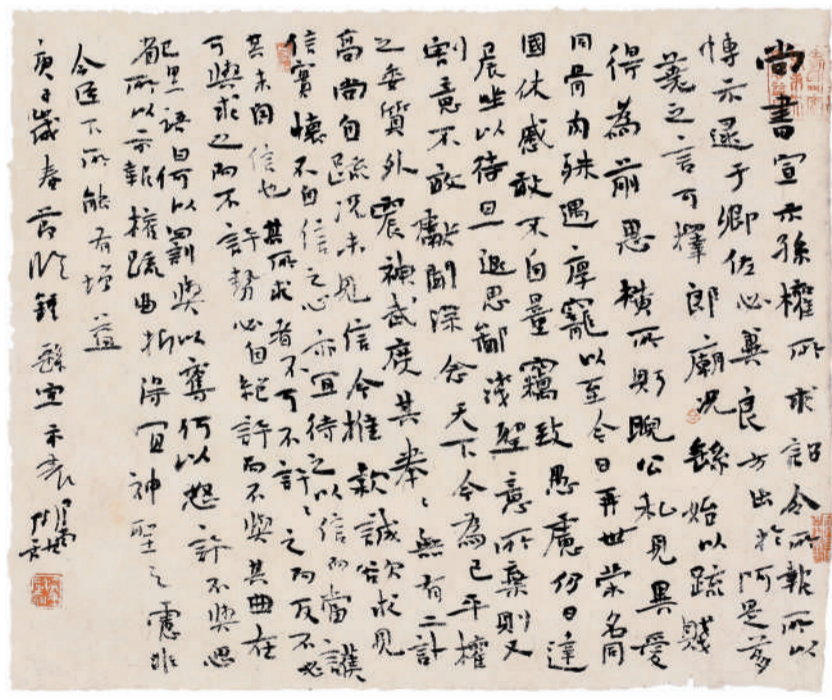 尚書宣示孫權所求詔令所報所以
博示逮于卿佐必冀良方出於阿是芻
蕘之言可擇郎廟況繇始以疏賤
得為前恩橫所眄睨公私見異愛
同骨肉殊遇厚寵以至今日再世榮名同
國休慼敢不自量竊致愚慮仍日達
晨坐以待旦退思鄙淺聖意所棄則又
割意不敢獻聞深念天下今為已平權
之委質外震神武度其拳〻無有二計
高尚自疏況未見信今推款誠欲求見
信實懷不自信之心亦宜待之以信而當護
其未自信也其所求者不可不許〻之而反不必
可與求之而不許勢必自絕許而不與其曲在
己里語曰何以罰與以奪何以怒許不與思
省所以示報權疏曲折得宜神聖之慮非
今臣下所能有增益
庚子歲春節臨鍾繇宣示表